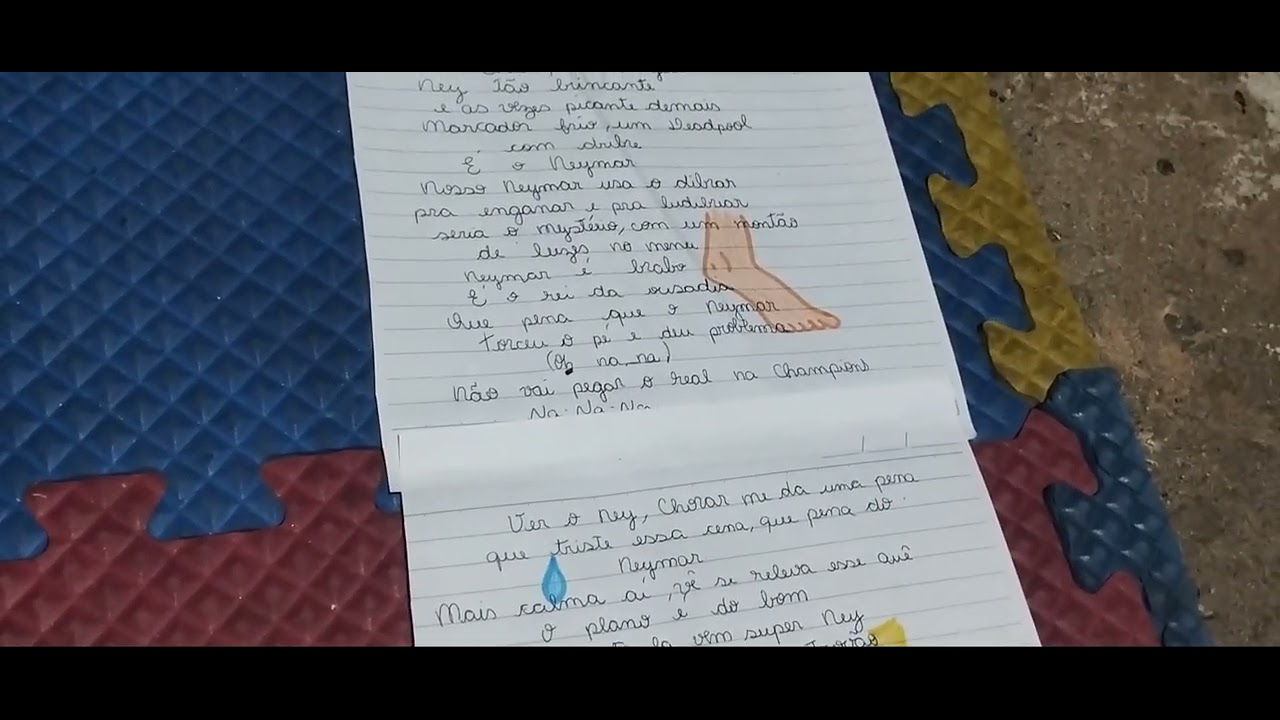 Ney tão brincante
e as vezes picante demais
Marcador frio, um Deadpool
com drible
É o Neymar
Nosso Neymar usa o dibrar
pra enganar e pra ludibriar
seria o mystério, com um montão
de luzes no menu
Neymar é brabo
É o rei da ousadia
Que pena que o Neymar
torceu o pé e deu problema
(Oh na, na)
Não vai pegar o real na Champions
Na-Na-Na
Ver o Ney, Chorar me da uma pena
que triste essa cena, que pena do
Neymar
Mais calma aí, vê se releva esse auê
O plano é do bom
la vem super Ney